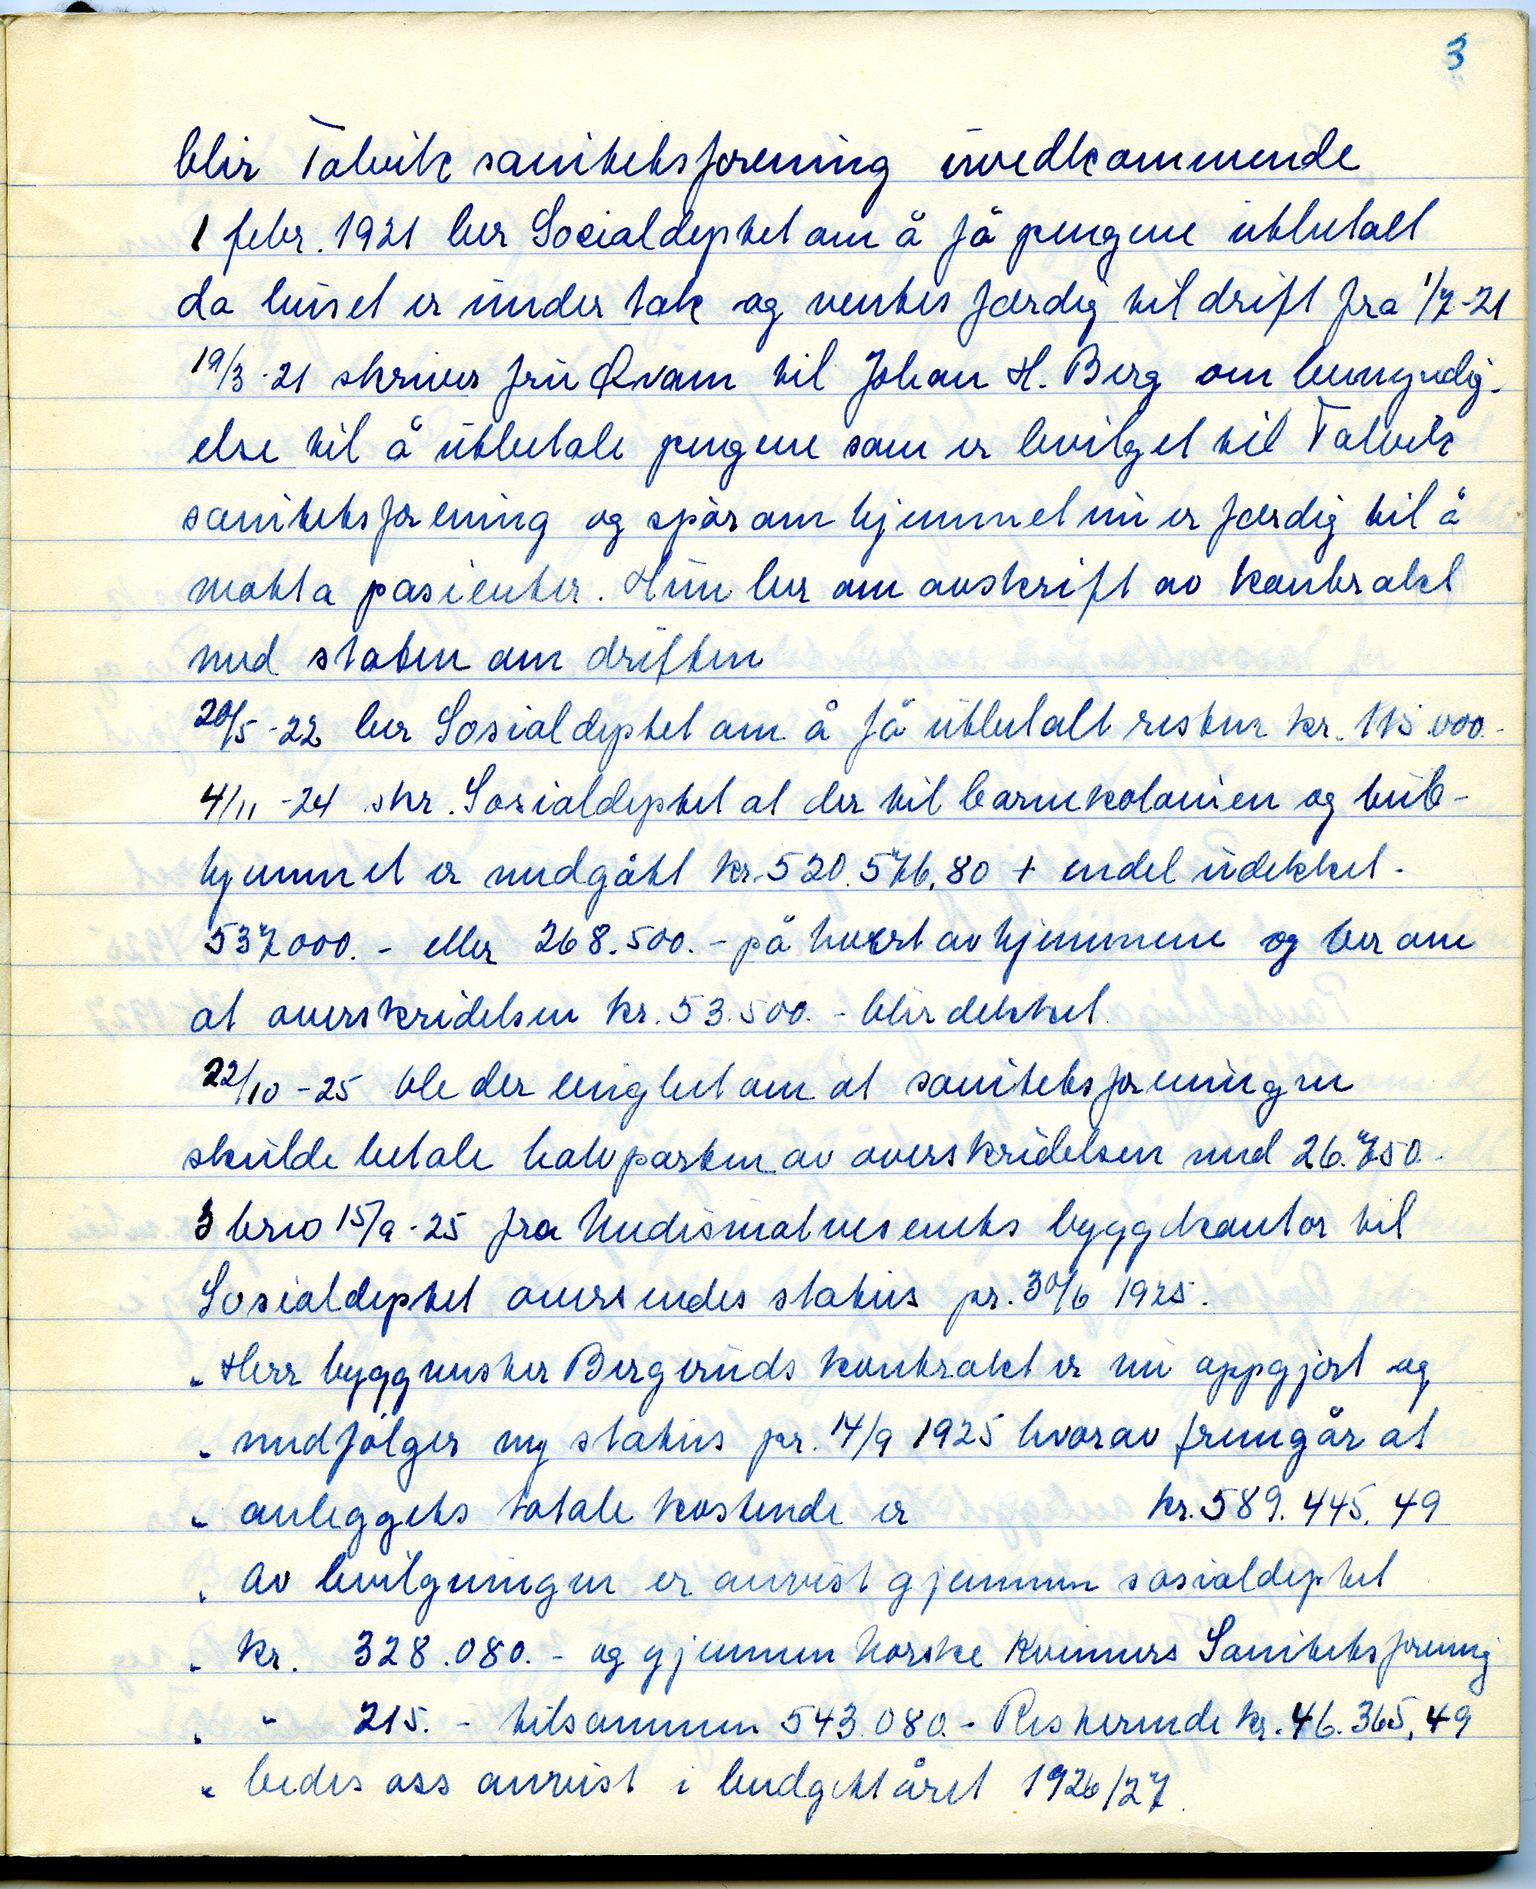 3
blir Talvik sanitetsforening uvedkommende
1 febr. 1921 ber Socialdeptet om å få pengene utbetalt
da huset er under tak og ventes færdig til drift fra 1/7-21
19/3-21 skriver fru Qvam til Johan H. Berg om bemyndig-
else til å utbetale pengene som er bevilget til Talvik
sanitetsforening og spör om hjemmet nu er færdig til å
motta pasienter. Hun ber om avskrift av kontrakt
med staten om driften
20/5-22 ber Sosialdeptet om å få utbetalt resten kr. 115.000.-
4/11-24 skr. Sosialdeptet at der til barnekolonien og tub-
hjemmet er medgått kr. 520.576,80 + endel udekket.
537000.- eller 268.500.- på hvert av hjemmene og ber om
at overskridelsen kr. 53.500.- blir dekket.
22/10-25 ble der enighet om at sanitetsforeningen
skulde betale halvparten av overskridelsen med 26.750.-
I brev 15/9-25 fra Medisinalvesenets byggekontor til
Sosialdeptet oversendes status pr. 30/6 1925.
" Herr byggmester Bergeruds kontrakt er nu oppgjort og
" medfölger ny status pr. 14/9 1925 hvorav fremgår at
" anleggets totale kostende er kr. 589.445,49
" Av bevilgningen er anvist gjennem sosialdeptet
" kr. 328.080.- og gjennem Norske Kvinners Sanitetsforening
" " 215.- tilsammen 543.080.- Resterende kr. 46.365,49
" bedes oss anvist i budgettåret 1926/27.